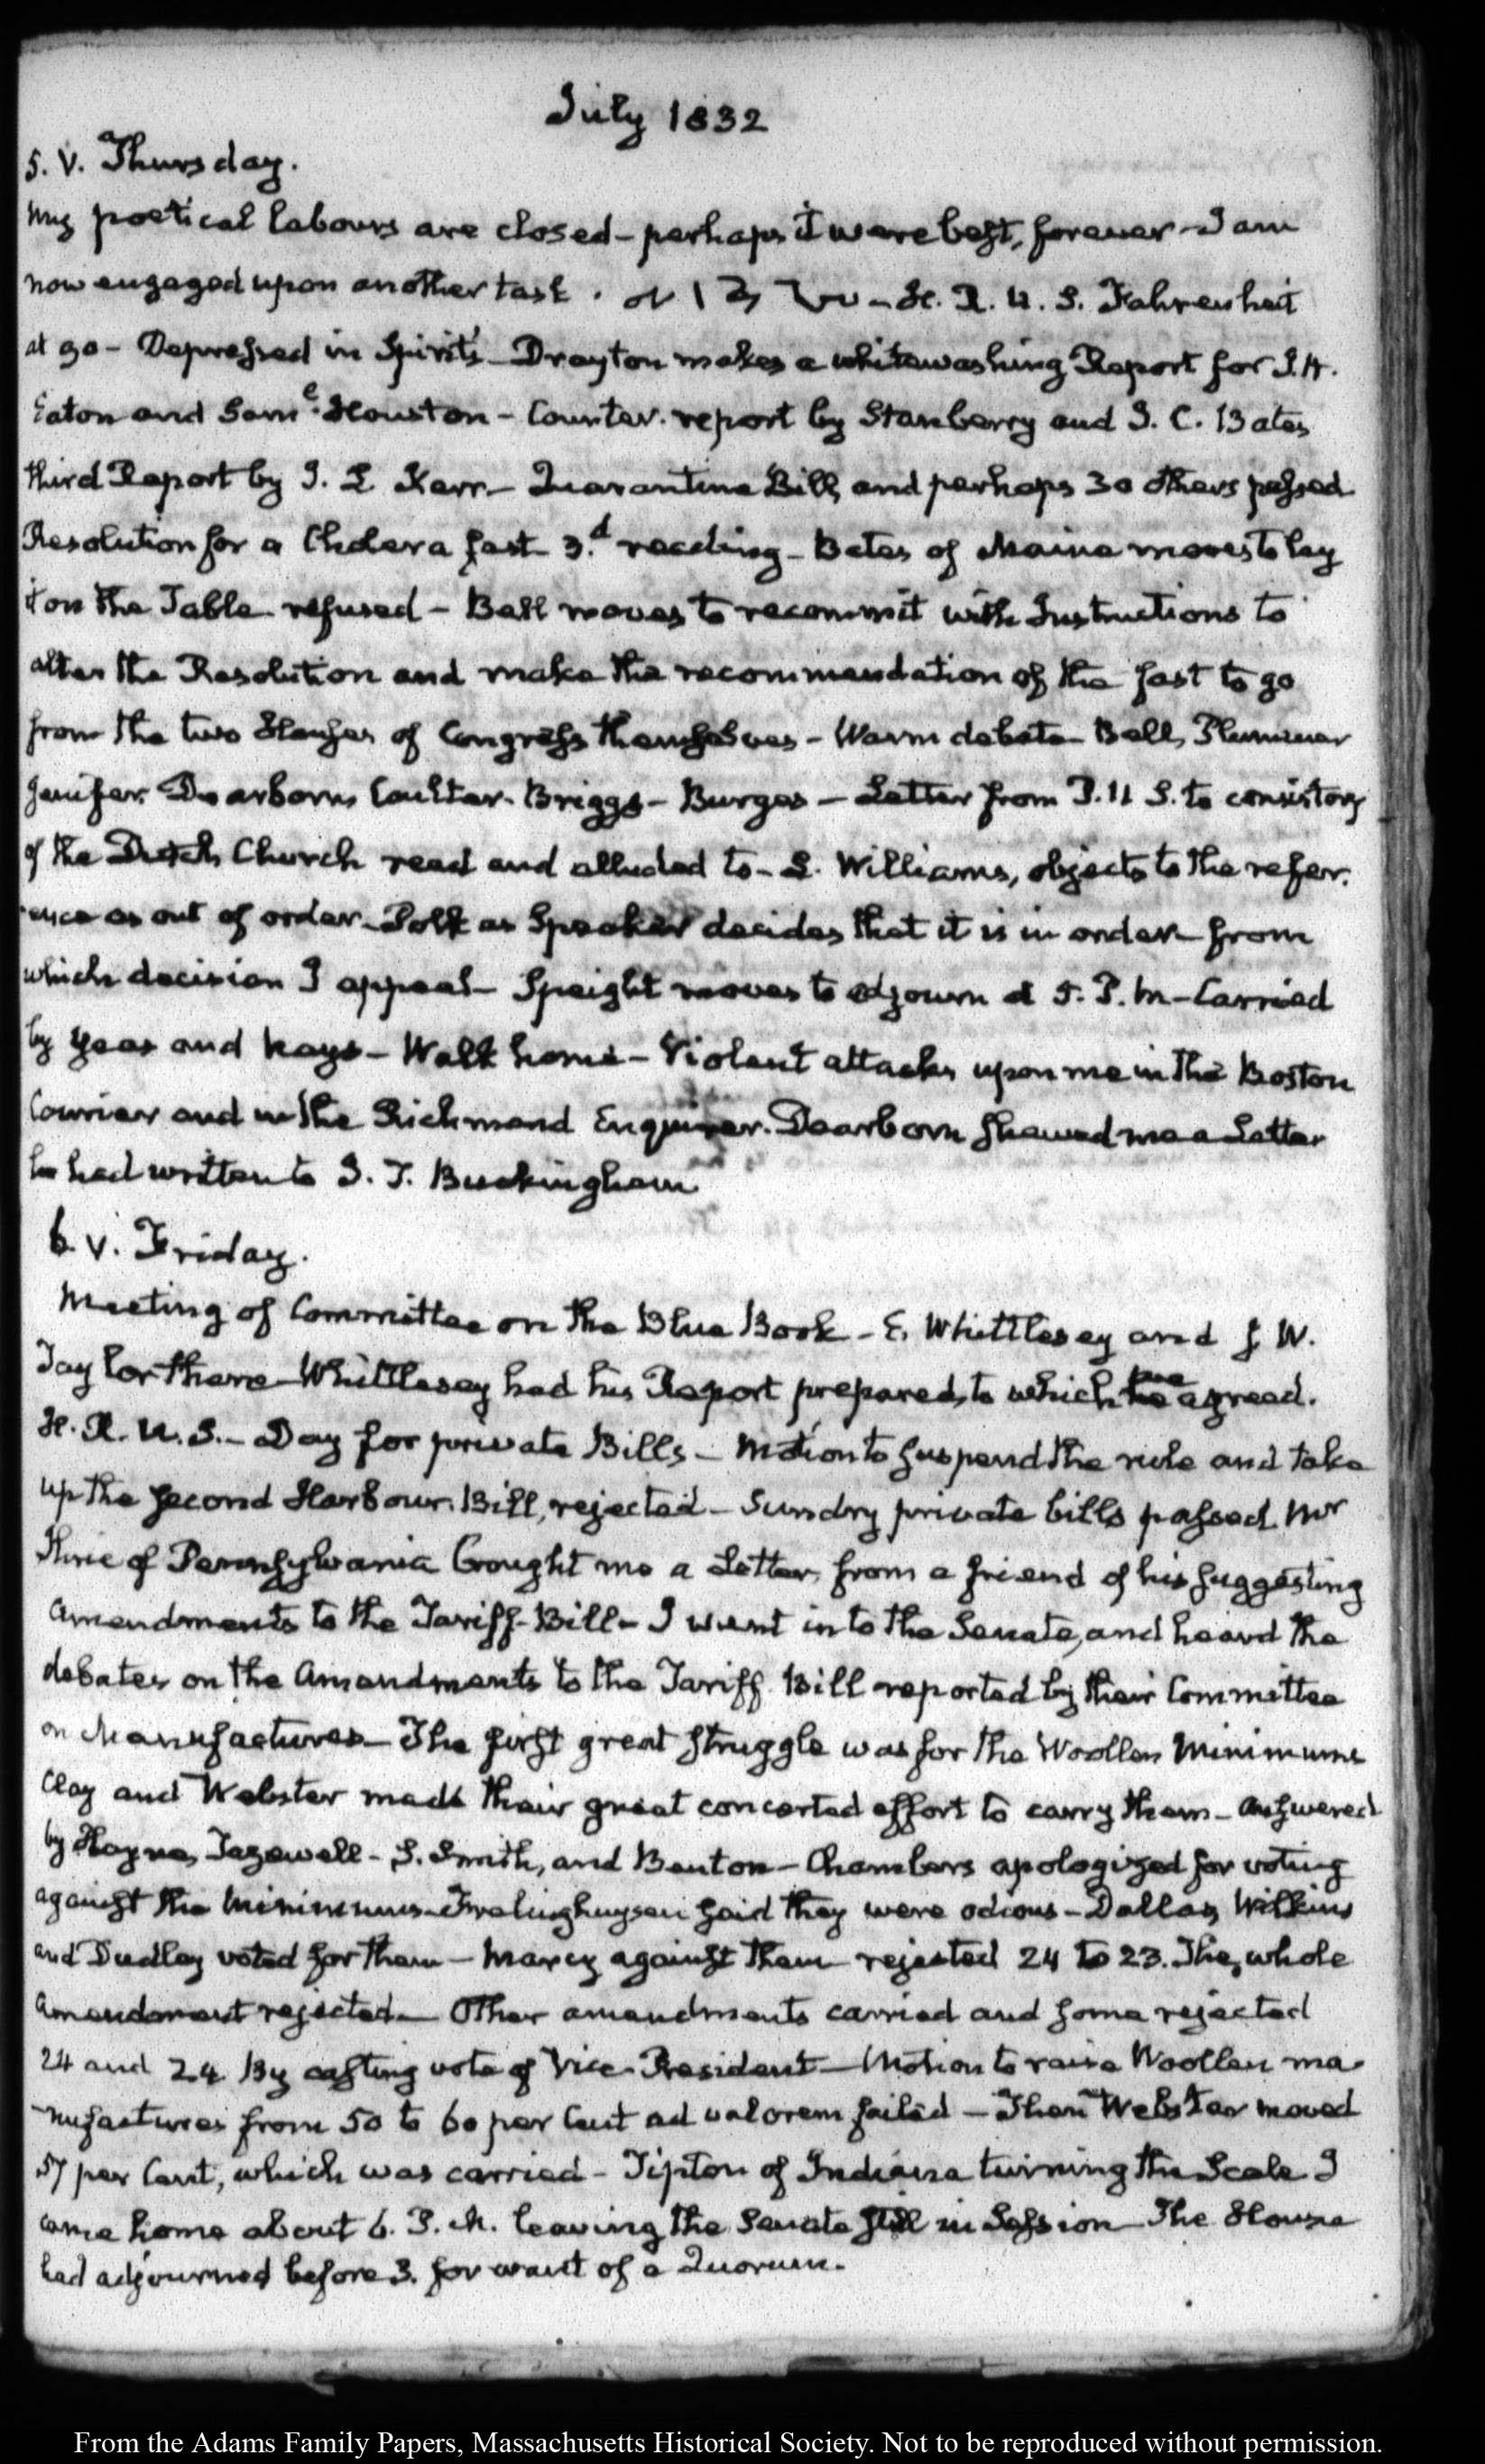 July 1832
5. V. Thursday.
My poetical labours are closed – perhaps it were best, forever – I am
now engaged upon another task. – H. R. U. S. Fahrenheit
at 90 – Depressed in Spirits – Drayton makes a whitewashing Report for J. H.
Eaton and Saml. Houston – Counter-report by Stanberry and I. C. Bates
third Report by J. L Kerr – Quarantine Bill, and perhaps 30 others passed
Resolution for a Cholera fast 3.d reading – Bates of Maine moves to lay
it on the Table refused – Bell moves to recommit with Instructions to
alter the Resolution and make the recommendation of the fast to go
from the two Houses of Congress themselves – Warm debate – Bell, Plummer
Jenifer, Dearborn, Coulter – Briggs – Burges – Letter from P. U S. to consistory
of the Dutch Church read and alluded to – L. Williams, objects to the refer-
-ence as out of order – Polk as Speaker decides that it is in order – from
which decision I appeal – Speight moves to adjourn at 5. P. M – Carried
by Yeas and Nays – Walk home – Violent attacks upon me in the Boston
Courier and in the Richmond Enquirer. Dearborn shewed me a Letter
he had written to J. T. Buckingham
6. V. Friday.
Meeting of Committee on the Blue Book – E. Whittlesey and J W.
Taylor there – Whittlesey had his Report prepared, to which we agreed.
H. R. U. S. – Day for private Bills – Motion to suspend the rule and take
up the second Harbour Bill, rejected – Sundry private bills passed Mr
of Pennsylvania brought me a Letter, from a friend of his suggesting
Amendments to the Tariff-Bill – I went into the Senate, and heard the
debates on the Amendments to the Tariff Bill reported by their Committee
on Manufactures – The first great struggle was for the Woollen Minimums
Clay and Webster made their great concerted effort to carry them – answered
by Hayne, Tazewell – S. Smith, and Benton – Chambers apologized for voting
against the Minimums – Frelinghuysen said they were odious – Dallas, Wilkins
and Dudley voted for them – Marcy against them – rejected 24 to 23. The whole
Amendment rejected – Other amendments carried and some rejected
24 and 24 By casting vote of Vice-President – Motion to raise Woollen ma-
-nufactures from 50 to 60 per Cent ad valorem failed – Then Webster moved
57 per Cent, which was carried – Tipton of Indiana turning the Scale I
came home about 6. P. M. leaving the Senate still in Session – The House
had adjourned before 3. for want of a Quorum.
From the Adams Family Papers, Massachusetts Historical Society. Not to be reproduced without permission.